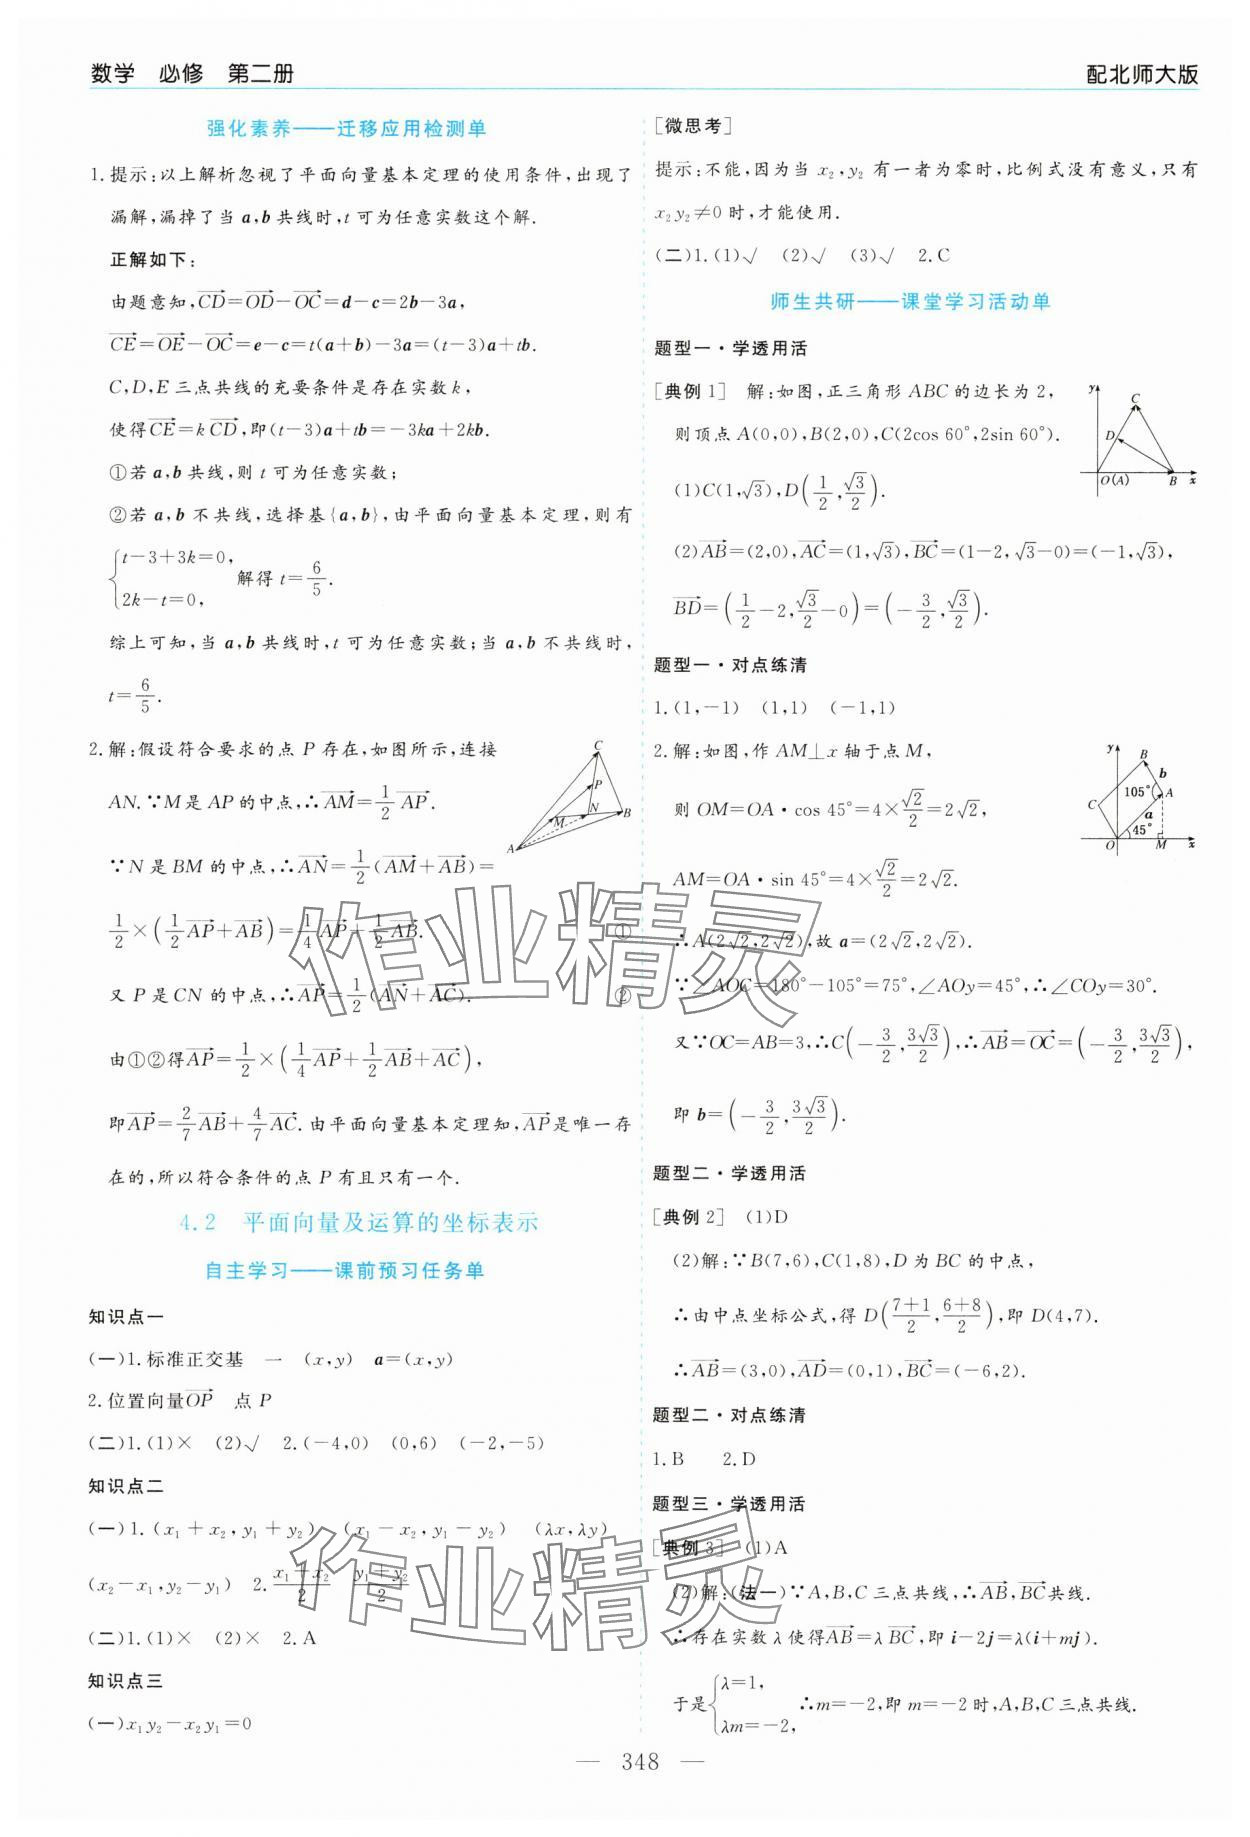 数学　必修　第二册
配北师大版
强化素养——迁移应用检测单
1.提示:以上解析忽视了平面向量基本定理的使用条件,出现了
漏解,漏掉了当 a,b 共线时,t 可为任意实数这个解.
正解如下:
由题意知,$\overrightarrow{CD}=\overrightarrow{OD}-\overrightarrow{OC}$=d-c=2b-3a,
$\overrightarrow{CE}=\overrightarrow{OE}-\overrightarrow{OC}$=e-c=t(a+b)-3a=(t-3)a+tb.
C,D,E 三点共线的充要条件是存在实数 k,
使得$\overrightarrow{CE}=k\overrightarrow{CD}$,即(t-3)a+tb=-3ka+2kb.
①若 a,b 共线,则 t 可为任意实数;
②若 a,b 不共线,选择基{a,b},由平面向量基本定理,则有
$\begin{cases}t-3+3k=0,\\2k-t=0,\end{cases}$ 解得 $t=\frac{6}{5}$.
综上可知,当 a,b 共线时,t 可为任意实数;当 a,b 不共线时,
$t=\frac{6}{5}$.
2.解:假设符合要求的点 P 存在,如图所示,连接
AN.∵M 是 AP 的中点,∴$\overrightarrow{AM}=\frac{1}{2}\overrightarrow{AP}$.
∵N 是 BM 的中点,∴$\overrightarrow{AN}=\frac{1}{2}(\overrightarrow{AM}+\overrightarrow{AB})=$
$\frac{1}{2}\times\left(\frac{1}{2}\overrightarrow{AP}+\overrightarrow{AB}\right)=\frac{1}{4}\overrightarrow{AP}+\frac{1}{2}\overrightarrow{AB}$. ①
又 P 是 CN 的中点,∴$\overrightarrow{AP}=\frac{1}{2}(\overrightarrow{AN}+\overrightarrow{AC})$. ②
由①②得$\overrightarrow{AP}=\frac{1}{2}\times\left(\frac{1}{4}\overrightarrow{AP}+\frac{1}{2}\overrightarrow{AB}+\overrightarrow{AC}\right)$,
即$\overrightarrow{AP}=\frac{2}{7}\overrightarrow{AB}+\frac{4}{7}\overrightarrow{AC}$.由平面向量基本定理知,$\overrightarrow{AP}$是唯一存
在的,所以符合条件的点 P 有且只有一个.
C
P
M
N
B
A
4.2　平面向量及运算的坐标表示
自主学习——课前预习任务单
知识点一
(一)1.标准正交基　一　(x,y)　a=(x,y)
2.位置向量$\overrightarrow{OP}$　点 P
(二)1.(1)×　(2)√　2.(-4,0)　(0,6)　(-2,-5)
知识点二
(一)1.(x₁+x₂,y₁+y₂)　(x₁-x₂,y₁-y₂)　(λx,λy)
(x₂-x₁,y₂-y₁)　2.$\frac{x_1+x_2}{2}$　$\frac{y_1+y_2}{2}$
(二)1.(1)×　(2)×　2.A
知识点三
(一)x₁y₂-x₂y₁=0
[微思考]
提示:不能,因为当 x₂,y₂ 有一者为零时,比例式没有意义,只有
x₂y₂≠0 时,才能使用.
(二)1.(1)√　(2)√　(3)√　2.C
师生共研——课堂学习活动单
题型一·学透用活
[典例 1]　解:如图,正三角形 ABC 的边长为 2,
则顶点 A(0,0),B(2,0),C(2cos 60°,2sin 60°).
(1)C(1,√3),$D\left(\frac{1}{2},\frac{\sqrt{3}}{2}\right)$.
y
C
D
O(A)
B
x
(2)$\overrightarrow{AB}$=(2,0),$\overrightarrow{AC}$=(1,√3),$\overrightarrow{BC}$=(1-2,√3-0)=(-1,√3),
$\overrightarrow{BD}=\left(\frac{1}{2}-2,\frac{\sqrt{3}}{2}-0\right)=\left(-\frac{3}{2},\frac{\sqrt{3}}{2}\right)$.
题型一·对点练清
1.(1,-1)　(1,1)　(-1,1)
2.解:如图,作 AM⊥x 轴于点 M,
则 OM=OA·cos 45°=4×$\frac{\sqrt{2}}{2}$=2√2,
AM=OA·sin 45°=4×$\frac{\sqrt{2}}{2}$=2√2.
y
B
b
105°
A
C
a
45°
O
M
x
∴A(2√2,2√2),故 a=(2√2,2√2).
∵∠AOC=180°-105°=75°,∠AOy=45°,∴∠COy=30°.
又∵OC=AB=3,∴$C\left(-\frac{3}{2},\frac{3\sqrt{3}}{2}\right)$,∴$\overrightarrow{AB}=\overrightarrow{OC}=\left(-\frac{3}{2},\frac{3\sqrt{3}}{2}\right)$,
即 $b=\left(-\frac{3}{2},\frac{3\sqrt{3}}{2}\right)$.
题型二·学透用活
[典例 2]　(1)D
(2)解:∵B(7,6),C(1,8),D 为 BC 的中点,
∴由中点坐标公式,得 $D\left(\frac{7+1}{2},\frac{6+8}{2}\right)$,即 D(4,7).
∴$\overrightarrow{AB}$=(3,0),$\overrightarrow{AD}$=(0,1),$\overrightarrow{BC}$=(-6,2).
题型二·对点练清
1.B　2.D
题型三·学透用活
[典例 3]　(1)A
(2)解:(法一)∵A,B,C 三点共线,∴$\overrightarrow{AB}$,$\overrightarrow{BC}$共线.
∴存在实数 λ 使得$\overrightarrow{AB}=\lambda\overrightarrow{BC}$,即 i-2j=λ(i+mj).
于是$\begin{cases}\lambda=1,\\\lambda m=-2,\end{cases}$ ∴m=-2,即 m=-2 时,A,B,C 三点共线.
作业精灵
作业精灵
— 348 —